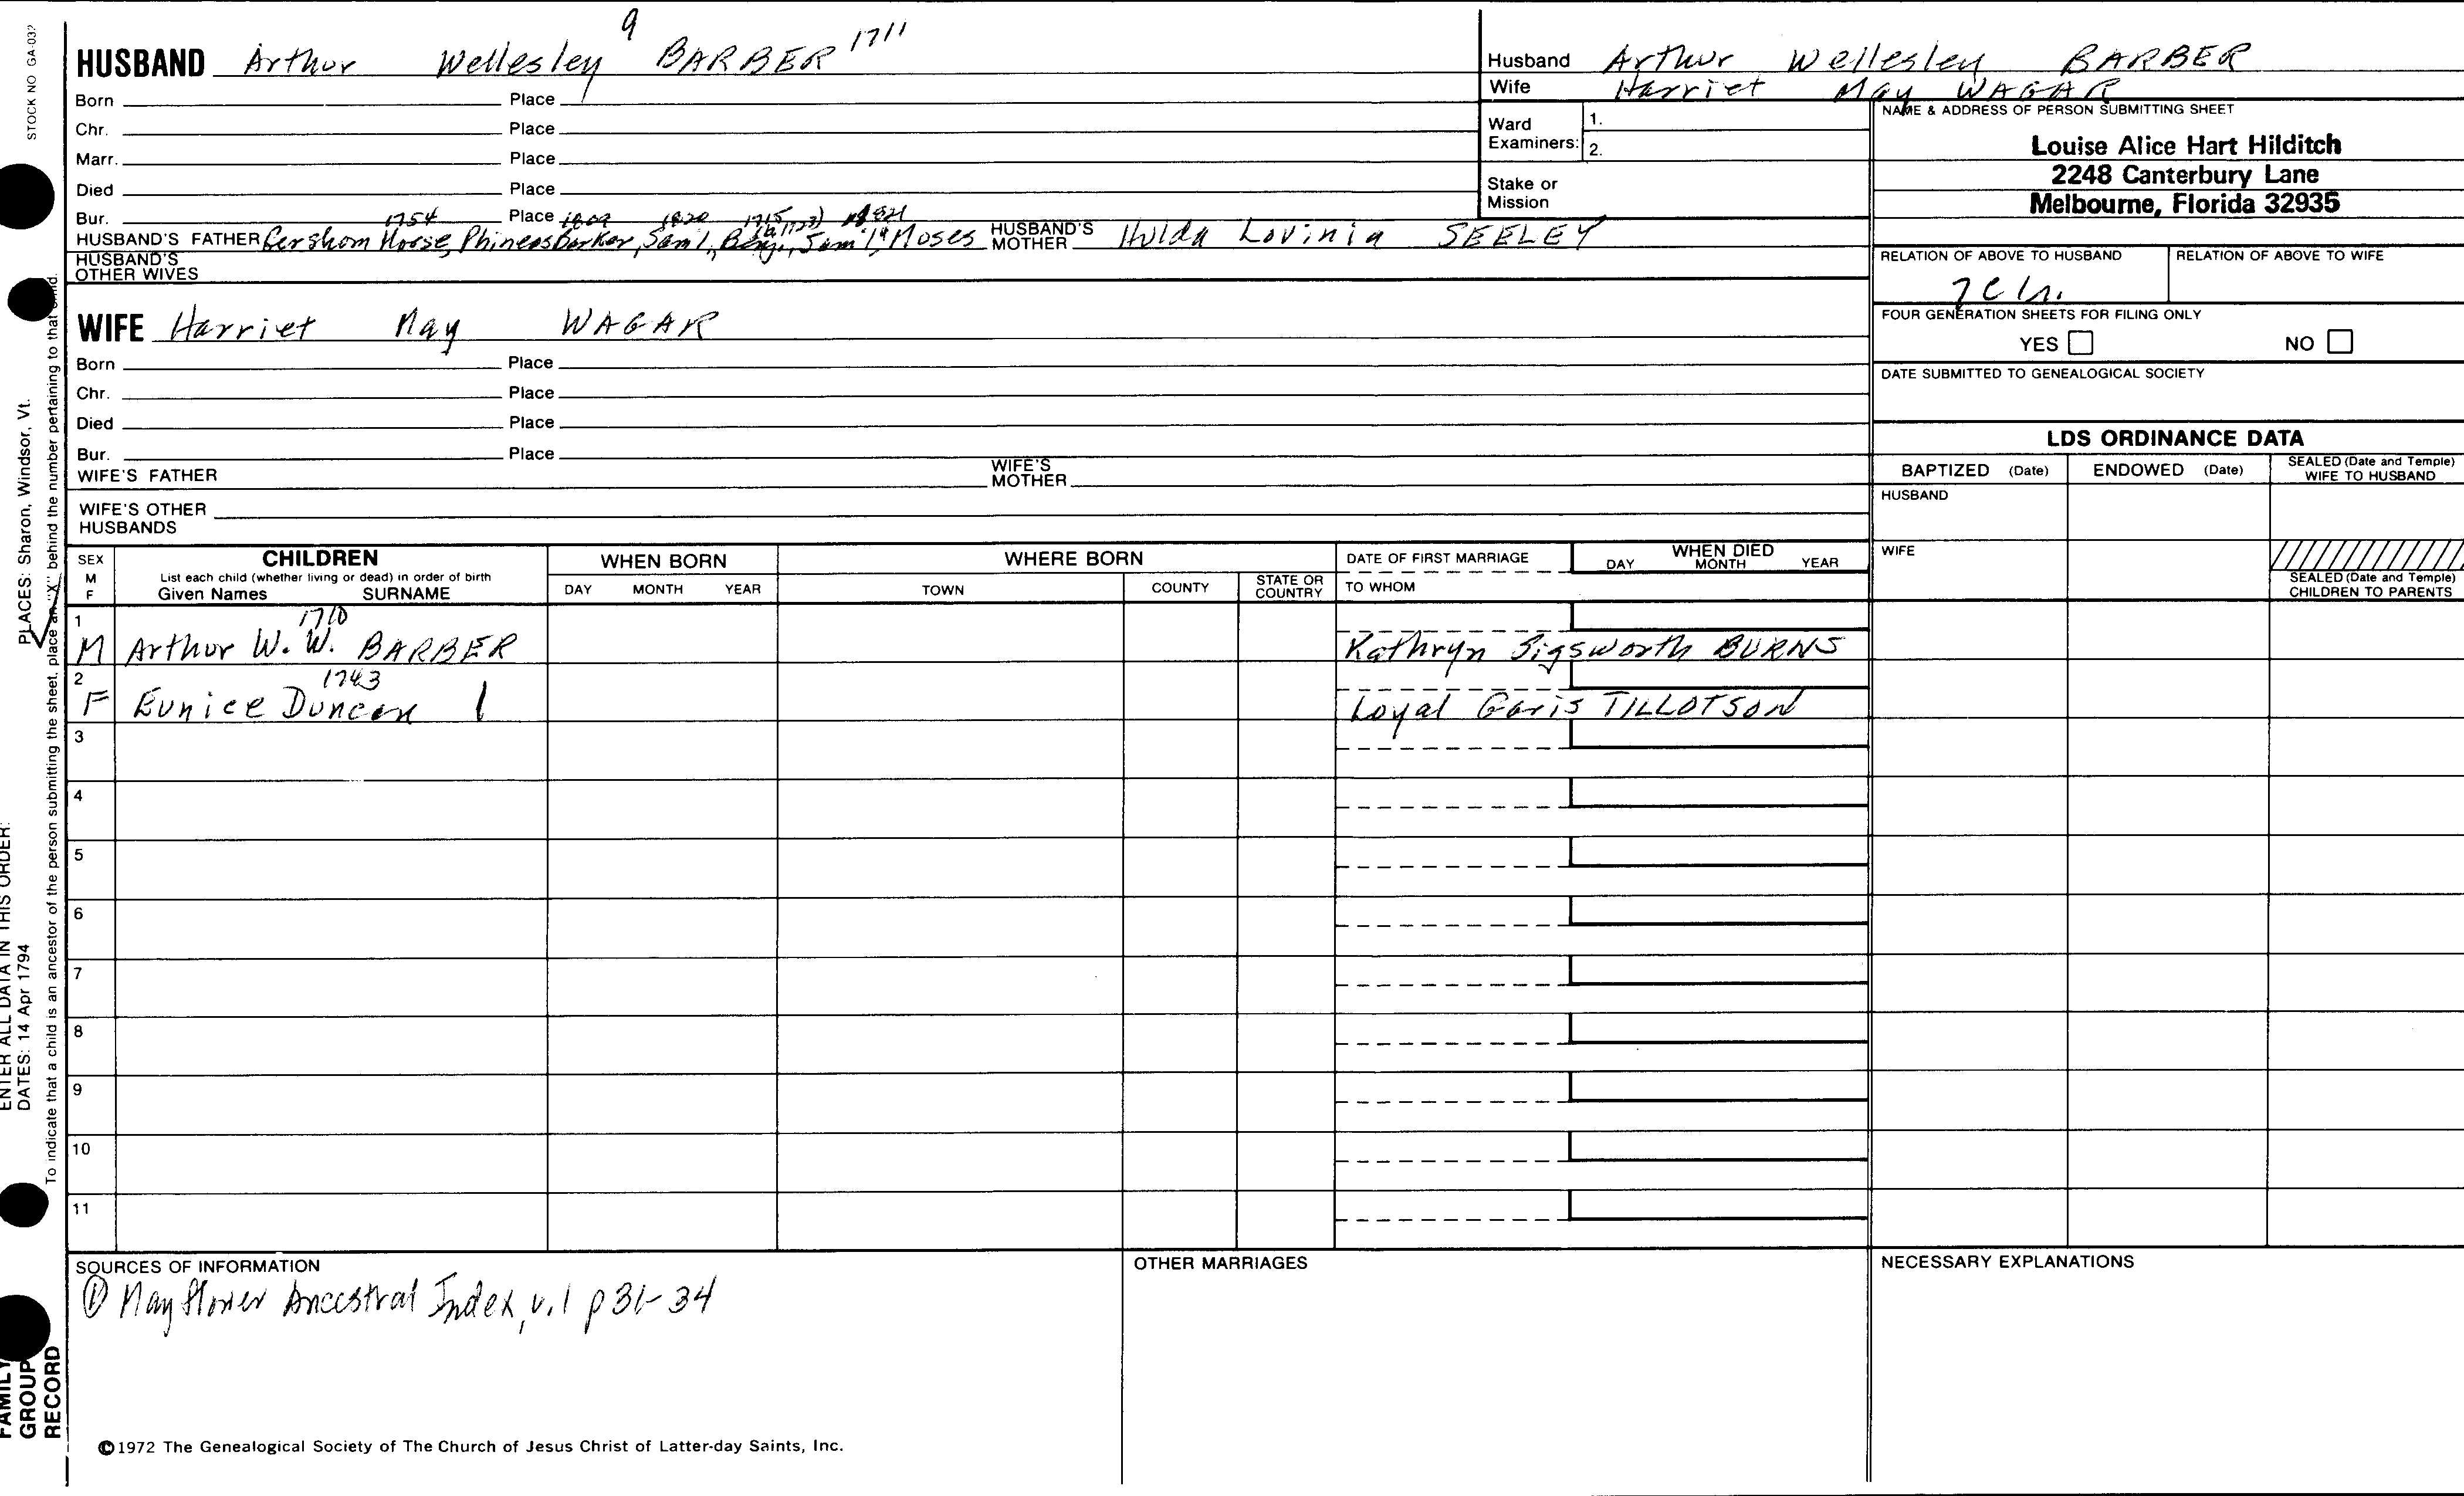 STOCK NO GA-03
9
HUSBAND Arthur Wellesley BARBER 1711
Born Place
Chr. Place
Marr. Place
Died Place
Bur. Place
1754 1820
HUSBAND'S FATHER Gershom Morse, Phineas Barker, Sam'l, Benj., Sam'l, Moses HUSBAND'S MOTHER Hulda Lovinia SEELEY
HUSBAND'S OTHER WIVES
WIFE Harriet May WAGAR
Born Place
Chr. Place
Died Place
Bur. Place
WIFE'S FATHER WIFE'S MOTHER
WIFE'S OTHER HUSBANDS
Husband Arthur Wellesley BARBER
Wife Harriet May WAGAR
Ward Examiners: 1.
2.
Stake or Mission
NAME & ADDRESS OF PERSON SUBMITTING SHEET
Louise Alice Hart Hilditch
2248 Canterbury Lane
Melbourne, Florida 32935
RELATION OF ABOVE TO HUSBAND RELATION OF ABOVE TO WIFE
FOUR GENERATION SHEETS FOR FILING ONLY
YES NO
DATE SUBMITTED TO GENEALOGICAL SOCIETY
LDS ORDINANCE DATA
BAPTIZED (Date) ENDOWED (Date) SEALED (Date and Temple) WIFE TO HUSBAND
HUSBAND
WIFE
SEALED (Date and Temple) CHILDREN TO PARENTS
SEX M F
CHILDREN
List each child (whether living or dead) in order of birth
Given Names SURNAME
WHEN BORN
DAY MONTH YEAR
WHERE BORN
TOWN COUNTY STATE OR COUNTRY
DATE OF FIRST MARRIAGE
TO WHOM
WHEN DIED
DAY MONTH YEAR
1 1710
M Arthur W. W. BARBER Kathryn Sigsworth BURNS
2 1743
F Eunice Duncan Loyal Garis TILLOTSON
3
4
5
6
7
8
9
10
11
SOURCES OF INFORMATION
① Mayflower Ancestral Index, v.1 p 31-34
OTHER MARRIAGES
NECESSARY EXPLANATIONS
©1972 The Genealogical Society of The Church of Jesus Christ of Latter-day Saints, Inc.
FAMILY GROUP RECORD
ENTER ALL DATA IN THIS ORDER:
DATES: 14 Apr 1794
PLACES: Sharon, Windsor, Vt.
To indicate that a child is an ancestor of the person submitting the sheet, place an "X" behind the number pertaining to that child.